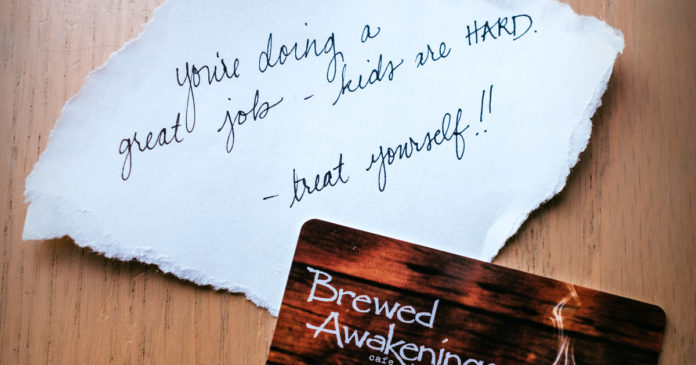 you're doing a
great job - kids are HARD.
- treat yourself!!
Brewed
Awakenings
cafe